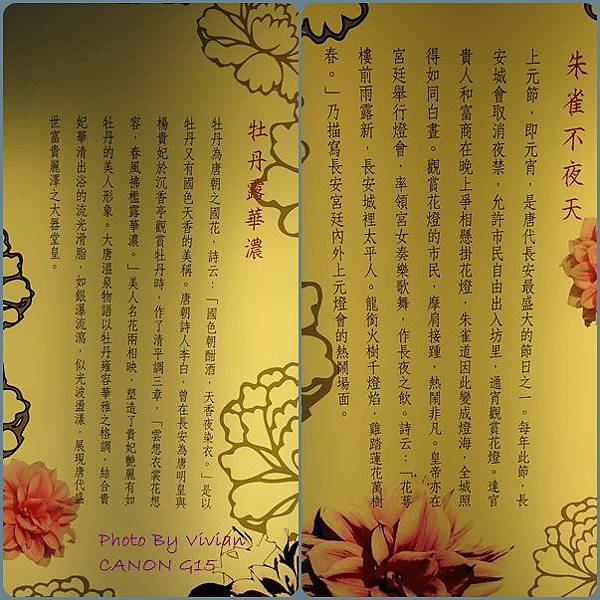 牡丹露華濃
牡丹為唐朝之國花，詩云：「國色朝酣酒，天香夜染衣。」是以
牡丹又有國色天香的美稱。唐朝詩人李白，曾在長安為唐明皇與
楊貴妃於沉香亭觀賞牡丹時，作了清平調三章，「雲想衣裳花想
容，春風拂檻露華濃。」美人名花兩相映，塑造了貴妃艷麗有如
牡丹的美人形象。大唐溫泉物語以牡丹雍容華雅之格調，結合貴
妃華清出浴的流光滑脂，如銀瀑流瀉，似光波盪漾，展現唐代盛
世富貴麗澤之大器堂皇。
Photo By Vivian
CANON G15
朱雀不夜天
上元節，即元宵，是唐代長安最盛大的節日之一。每年此節，長
安城會取消夜禁，允許市民自由出入坊里，通宵觀賞花燈。達官
貴人和富商在晚上爭相懸掛花燈，朱雀道因此變成燈海，全城照
得如同白晝。觀賞花燈的市民，摩肩接踵，熱鬧非凡。皇帝亦在
宮廷舉行燈會，率領宮女奏樂歌舞，作長夜之飲。詩云：「花萼
樓前雨露新，長安城裡太平人。龍銜火樹千燈焰，雞踏蓮花萬樹
春。」乃描寫長安宮廷內外上元燈會的熱鬧場面。